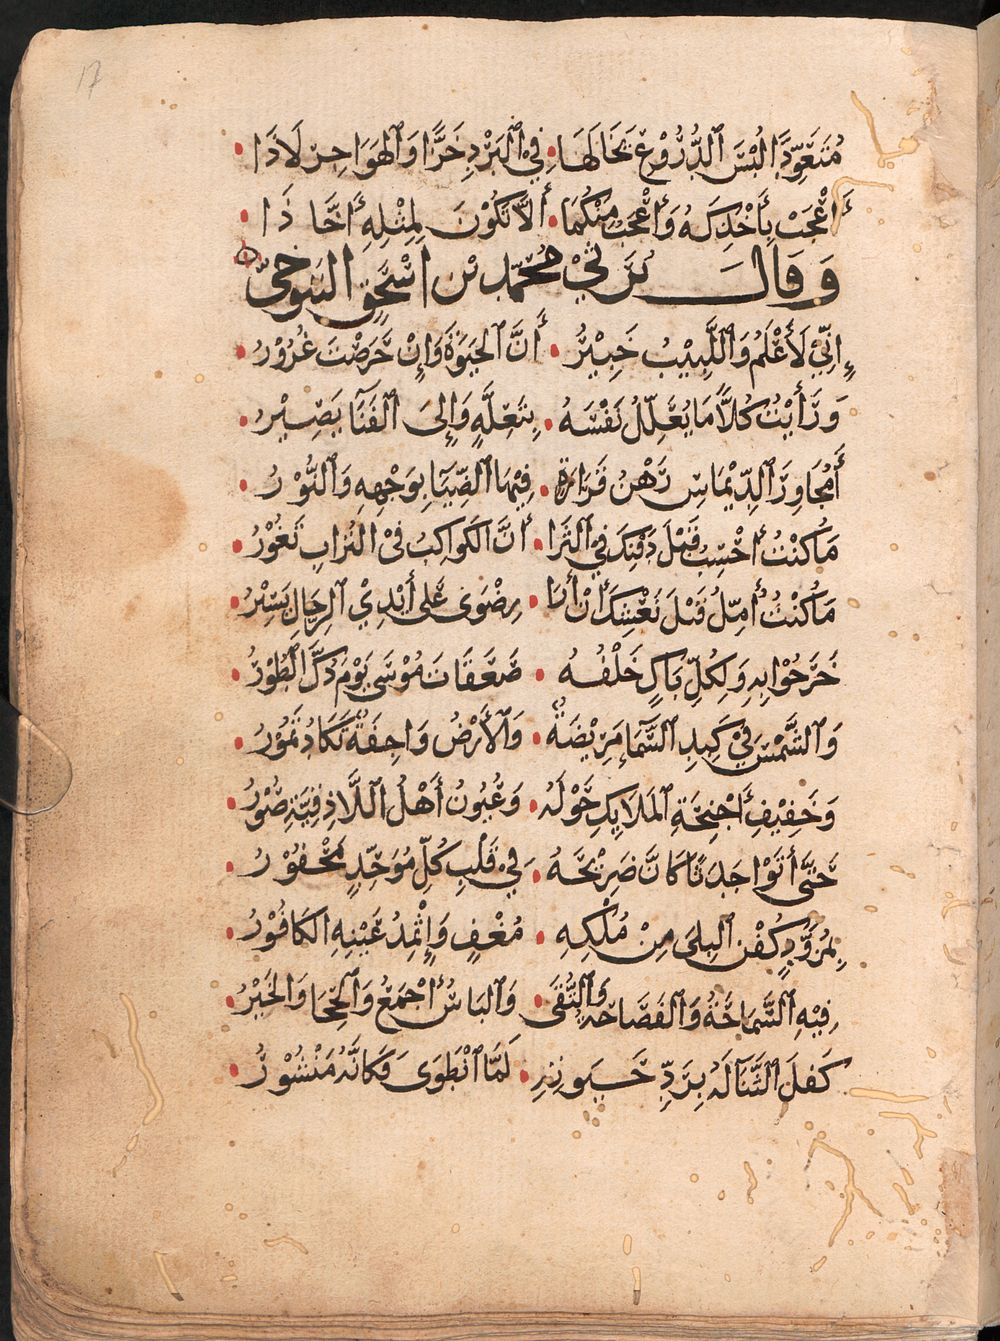 17
مُتَعَوِّدًا لُبْسَ ٱلدُّرُوْعِ يَخَالُهَا • فِيْ ٱلْبَرْدِ خَزًّا وَٱلْهَوَاجِرِ لَاذَا •
أَعْجَبْ بِأَخْذِكَهُ وَأَعْجَبُ مِنْكُمَا • أَلَّا تَكُوْنَ لِمِثْلِهِ أَخَّاذَا •
وَقَالَ يَرْثِيْ مُحَمَّدَ بْنَ اسْحٰقَ التَّنوخيّ
إِنِّيْ لَأَعْلَمُ وَٱللَّبِيْبُ خَبِيْرُ • أَنَّ ٱلْحَيَوٰةَ وَإِنْ حَرَصْتَ غُرُوْرُ •
وَرَأَيْتُ كُلًّا مَا يُعَلِّلُ نَفْسَهُ • بِتَعِلَّةٍ وَإِلَى ٱلْفَنَآءِ يَصِيْرُ •
أَمُجَاوِرَ ٱلدِّيْمَاسِ رَهْنَ قَرَارَةٍ • فِيْهَا ٱلضِّيَاءُ بِوَجْهِهِ وَٱلنُّوْرُ •
مَا كُنْتُ أَحْسِبُ قَبْلَ دَفْنِكَ فِيْ ٱلثَّرَا • أَنَّ الكَوَاكِبَ فِى التُرَابِ تَغُوْرُ •
مَا كُنْتُ أمِلُ قَبْلَ نَعْشِكَ أَنْ أَرَا • رِضْوَى عَلَى أَيْدِي ٱلرِّجَالِ يَسِيْرُ •
خَرَجُوْا بِهِ وَلِكُلِّ بَاكٍ خَلْفَهُ • صَعَقَاتُ مُوْسَى يَوْمَ دُكَّ ٱلطُوْرُ •
وَٱلشَّمْسُ فِيْ كَبِدِ ٱلسَّمَآءِ مَرِيْضَةٌ • وَٱلْأَرْضُ وَاجِفَةٌ تَكَادُ تَمُوْرُ •
وَحَفِيْفُ أَجْنِحَةِ ٱلْمَلَايِكِ حَوْلَهُ • وَعُيُوْنُ أَهْلِ ٱللَّاذِقِيَّةِ صُوْرُ •
حَتَّى أَتَوْا جَدَثًا كَانَ ضَرِيْحَهُ • فِيْ قَلْبِ كُلِّ مُوَحِّدٍ مَحْفُوْرُ •
بِمُزَوَّدٍ كَفَنَ ٱلْبِلَى مِنْ مُلْكِهِ • مُغْفٍ وَإِثْمِدُ عَيْنِهِ الكَافُوْرُ •
فِيْهِ ٱلسَّمَاحَةُ وَٱلْفَصَاحَةُ وَٱلتُّقَى • وَٱلْبَاسُ أَجْمَعُ وَٱلْحِجَا وَٱلْخِيْرُ •
كَفَلَ ٱلثَّنَآءُ لَهُ بِرَدِّ حَيَوٰتِهِ • لَمَّا ٱنْطَوَى فَكَانَّهُ مَنْشُوْرُ •